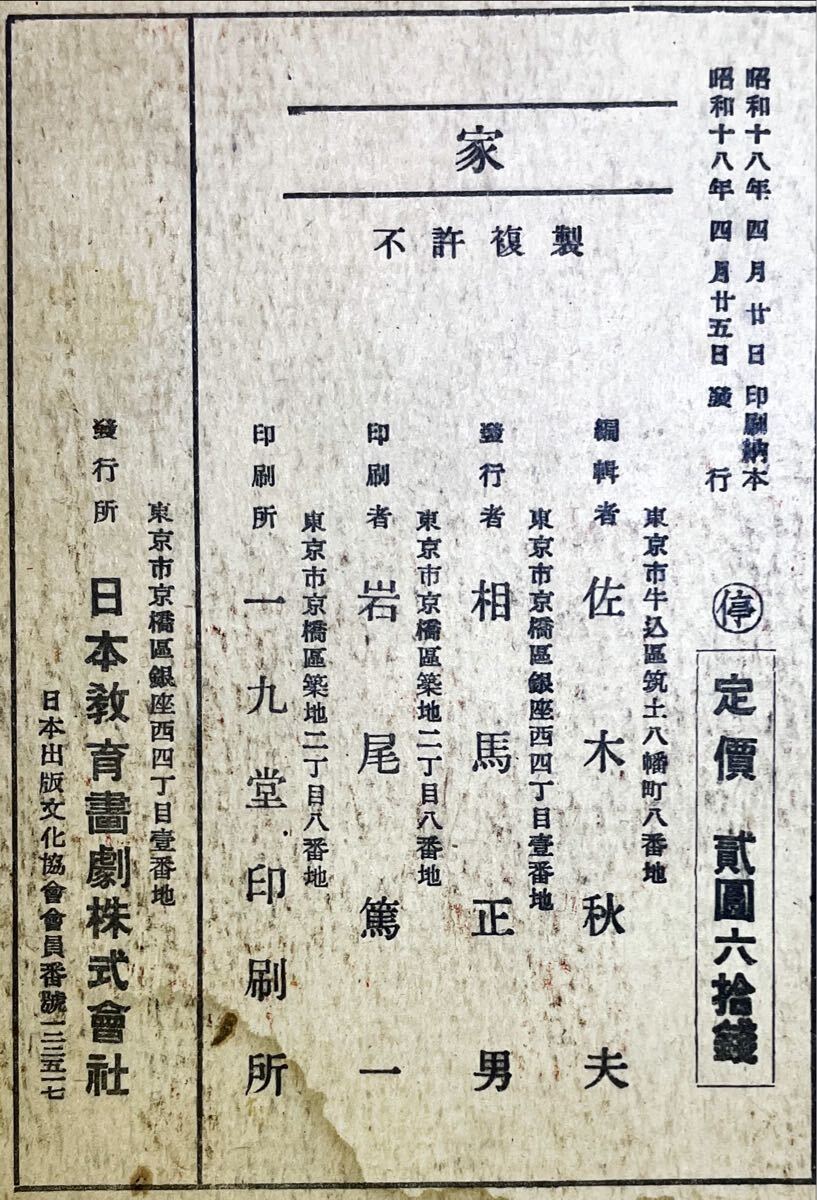 昭和十八年四月廿日印刷納本
昭和十八年四月廿五日發行
停
定價 貳圓六拾錢
家
不許複製
東京市牛込區筑土八幡町八番地
編輯者 佐木秋夫
東京市京橋區銀座西四丁目壹番地
發行者 相馬正男
東京市京橋區築地二丁目八番地
印刷者 岩尾篤一
東京市京橋區築地二丁目八番地
印刷所 一九堂印刷所
東京市京橋區銀座西四丁目壹番地
發行所 日本教育畫劇株式會社
日本出版文化協會會員番號